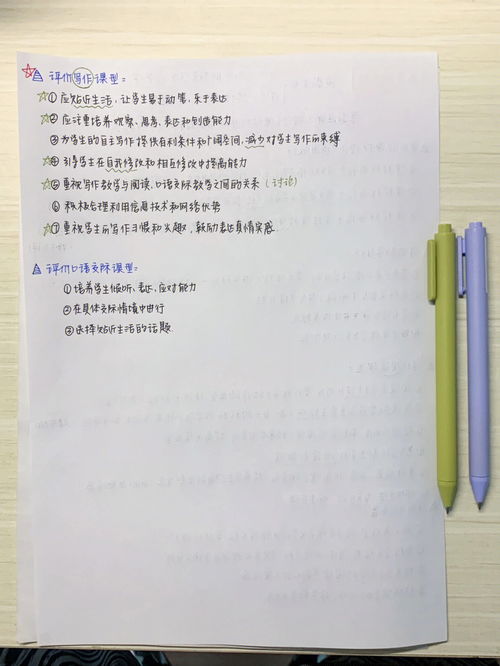 评价写作课型：
①应贴近生活，让学生易于动笔，乐于表达
②应注重培养观察、思考、表达和创造能力
③为学生的自主写作提供有利条件和广阔空间，减少对学生写作的束缚
④引导学生在自我修改和相互修改中提高能力
⑤重视写作教学与阅读、口语交际教学之间的关系（讨论）
⑥积极合理利用信息技术和网络优势
⑦重视学生的写作习惯和兴趣，鼓励表达真情实感
评价口语交际课型：
①培养学生倾听、表达、应对能力
②在具体交际情境中进行
③选择贴近生活的话题